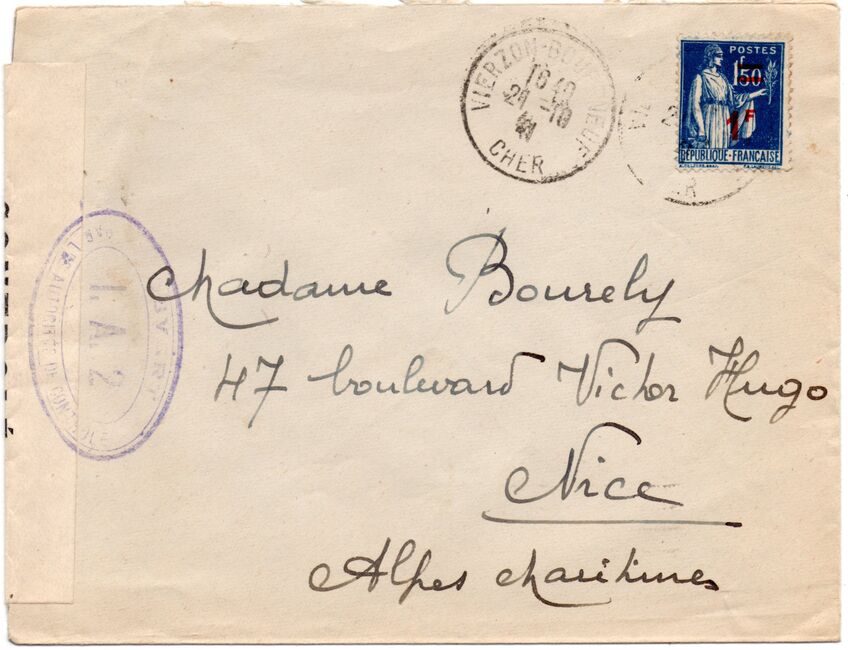 VIERZON-BOURGNEUF
16 40
21 -10
41
CHER
POSTES
1f50
1F
RÉPUBLIQUE-FRANÇAISE
OUVERT
PAR LES AUTORITÉS DE CONTRÔLE
LA2
Madame Bourely
47 boulevard Victor Hugo
Nice
Alpes Maritimes